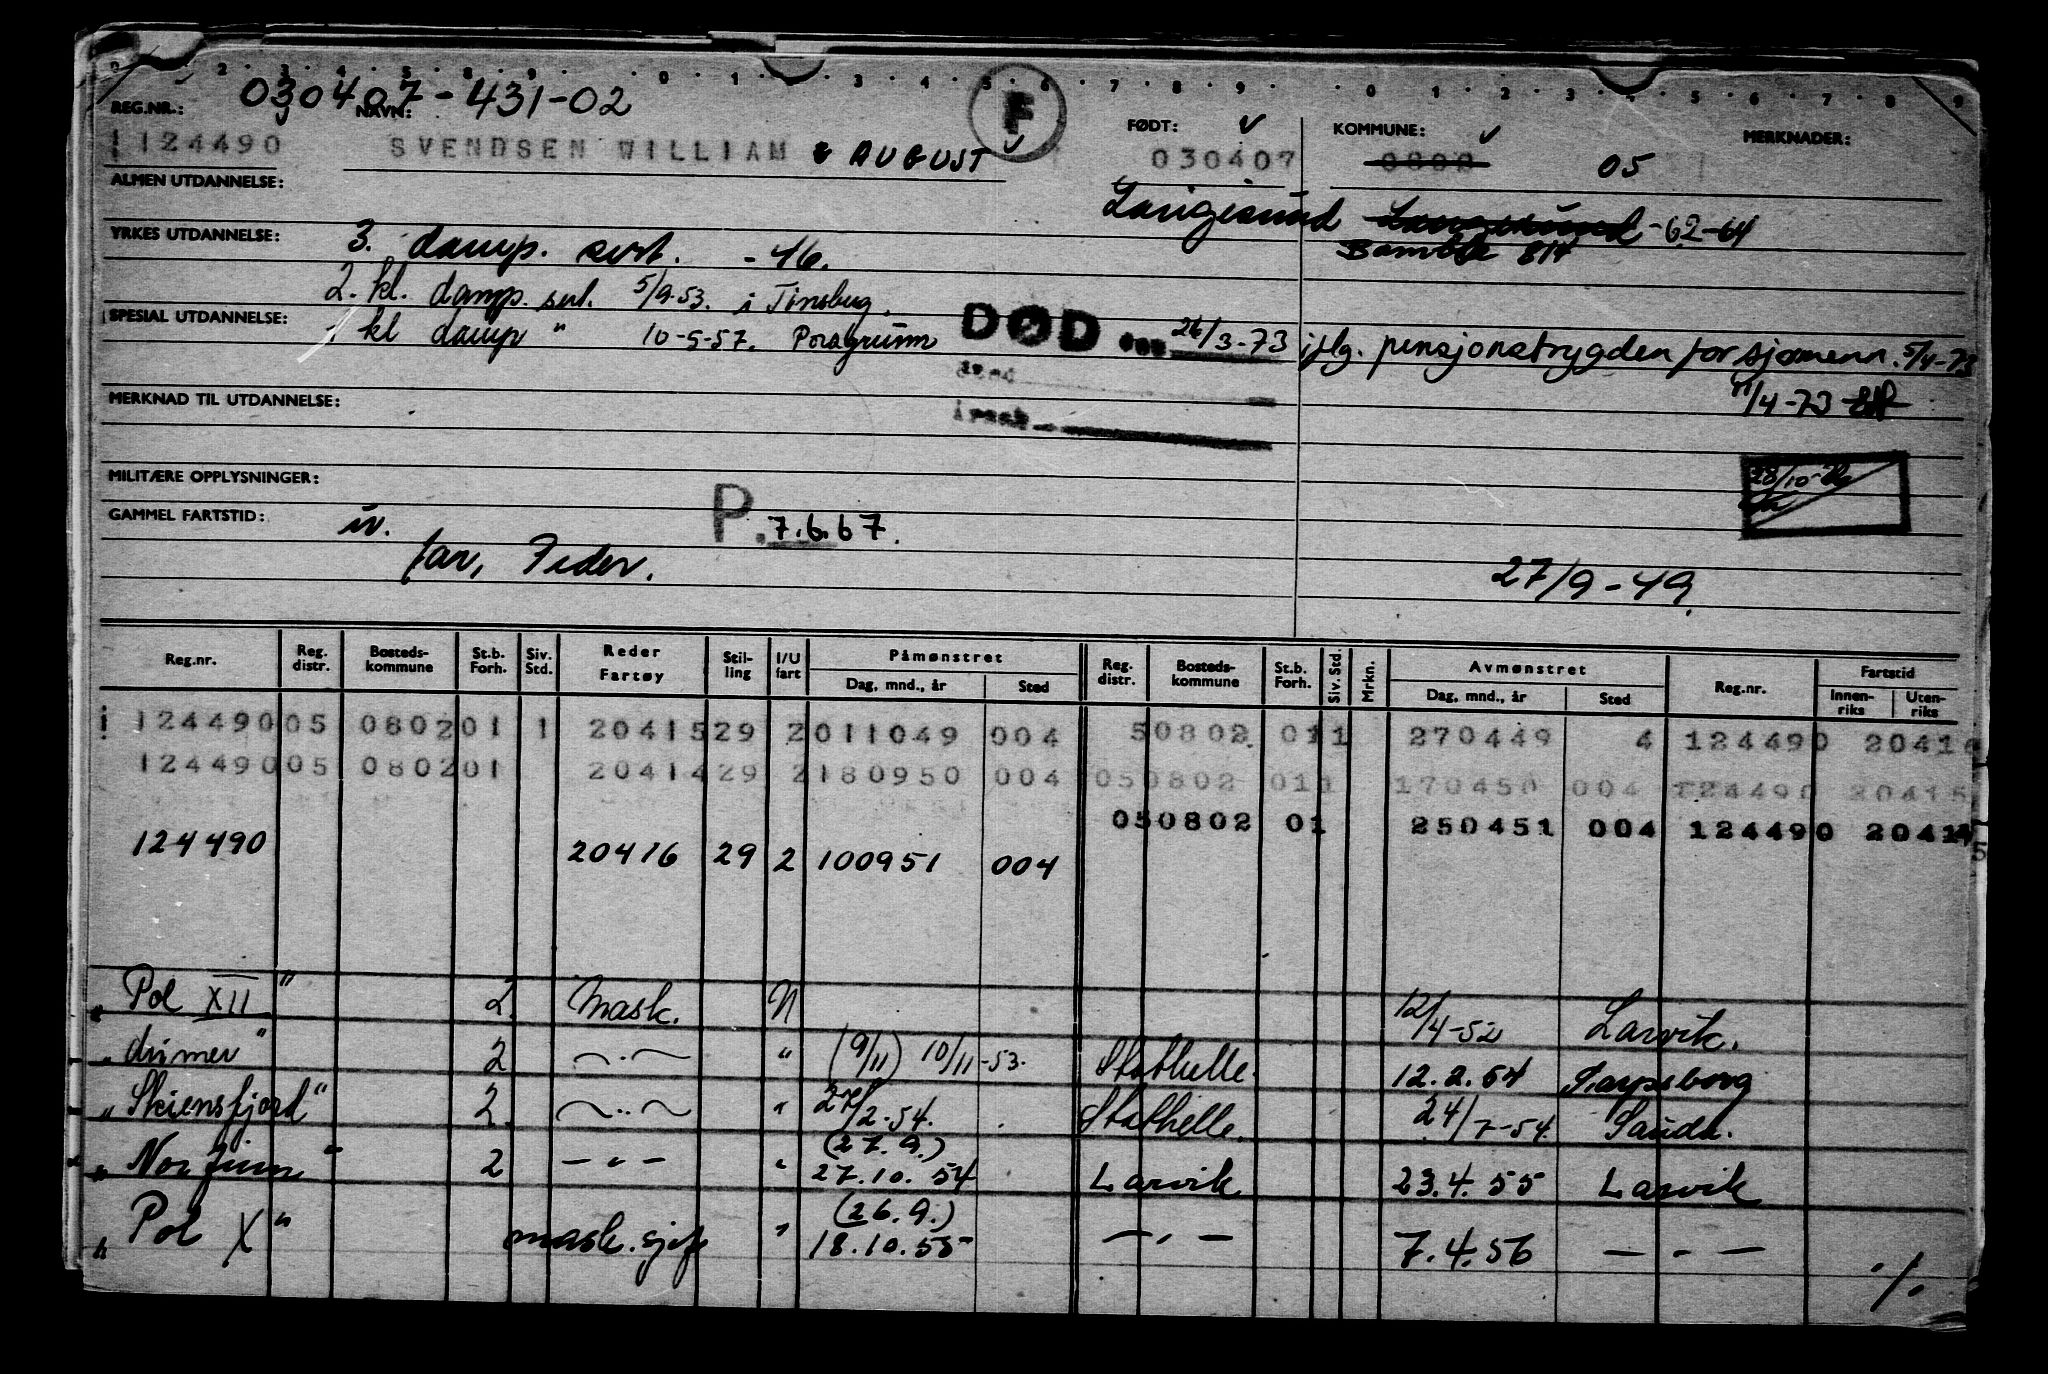 030407-431-02
REG.NR.: NAVN: F FØDT: ✓ KOMMUNE: ✓ MERKNADER:
124490 SVENDSEN WILLIAM AUGUST 030407 0802 05
ALMEN UTDANNELSE: Langesund Langesund -62-64
YRKES UTDANNELSE: 3. damp. sert. -46. Bamble 814
2. kl. damp. sert. 5/9.53. i Tønsberg.
SPESIAL UTDANNELSE: 1 kl damp " 10-5-57. Porsgrunn DØD 26/3-73 iflg. pensjonstrygden for sjømenn. 5/4-73
MERKNAD TIL UTDANNELSE: 11/4-73
MILITÆRE OPPLYSNINGER: 28/10
GAMMEL FARTSTID: P. 7.6.67.
far, Peder. 27/9-49.
Reg.nr. Reg. distr. Bosteds-kommune St.b. Forh. Siv. Std. Reder Fartøy Stil-ling I/U fart Påmønstret Dag, mnd., år Sted Reg. distr. Bosteds-kommune St.b. Forh. Siv. Std. Mrkn. Avmønstret Dag, mnd., år Sted Reg.nr. Fartstid Innen-riks Uten-riks
124490 05 0802 01 1 20415 29 2 011049 004 50802 01 1 270449 4 124490 2041
124490 05 0802 01 20414 29 2 180950 004 050802 01 170450 004 124490 20415
050802 01 250451 004 124490 20414
124490 20416 29 2 100951 004
"Pol XII" 2. Mask. N 12/4-52 Larvik.
2 " (9/11) 10/11-53. Stathelle. 12.2.54 Sarpsborg
"Skiensfjord" 2. " 27/2-54. Stathelle. 24/7-54. Sauda.
2 — " — " (27.9.) 27.10.54 Larvik 23.4.55 Larvik
"Pol X" mask.sjef " (26.9.) 18.10.55 — " — 7.4.56 — " —
./.